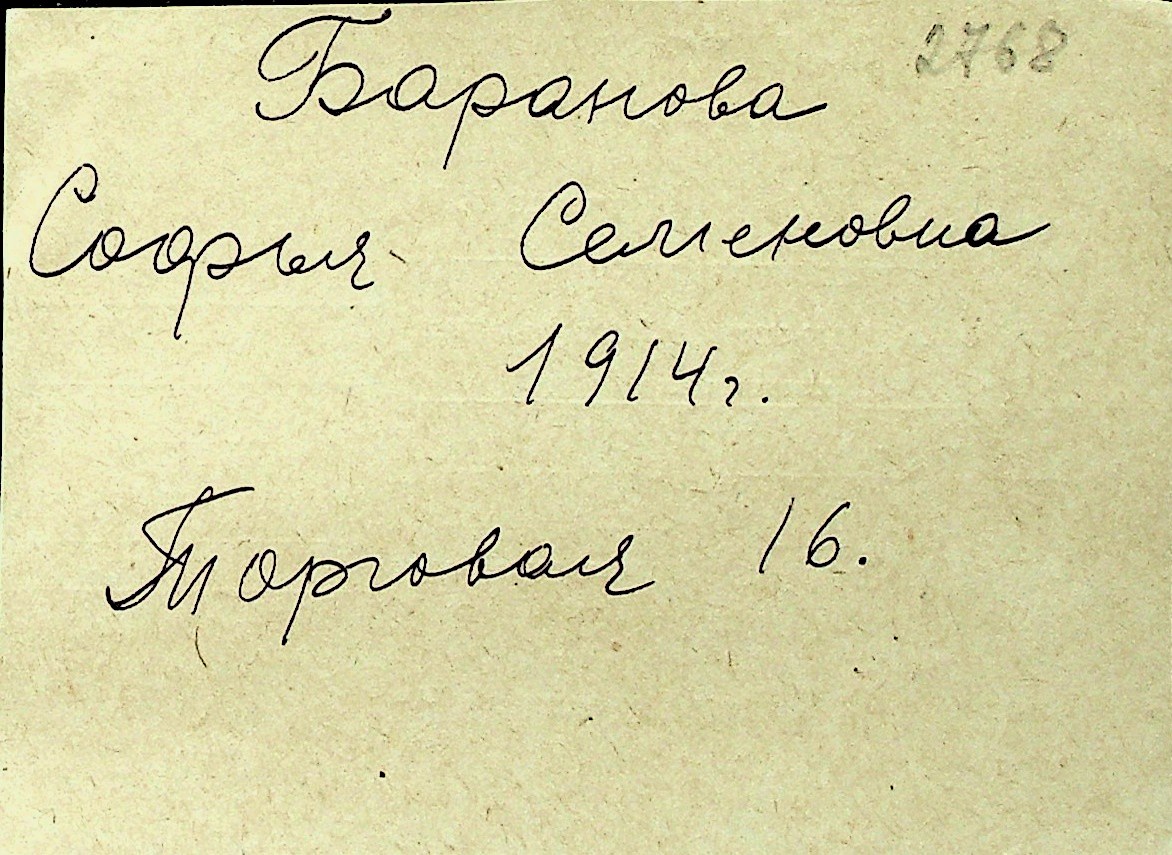 2768
Баранова
Софья Семеновна
1914г.
Торговая 16.